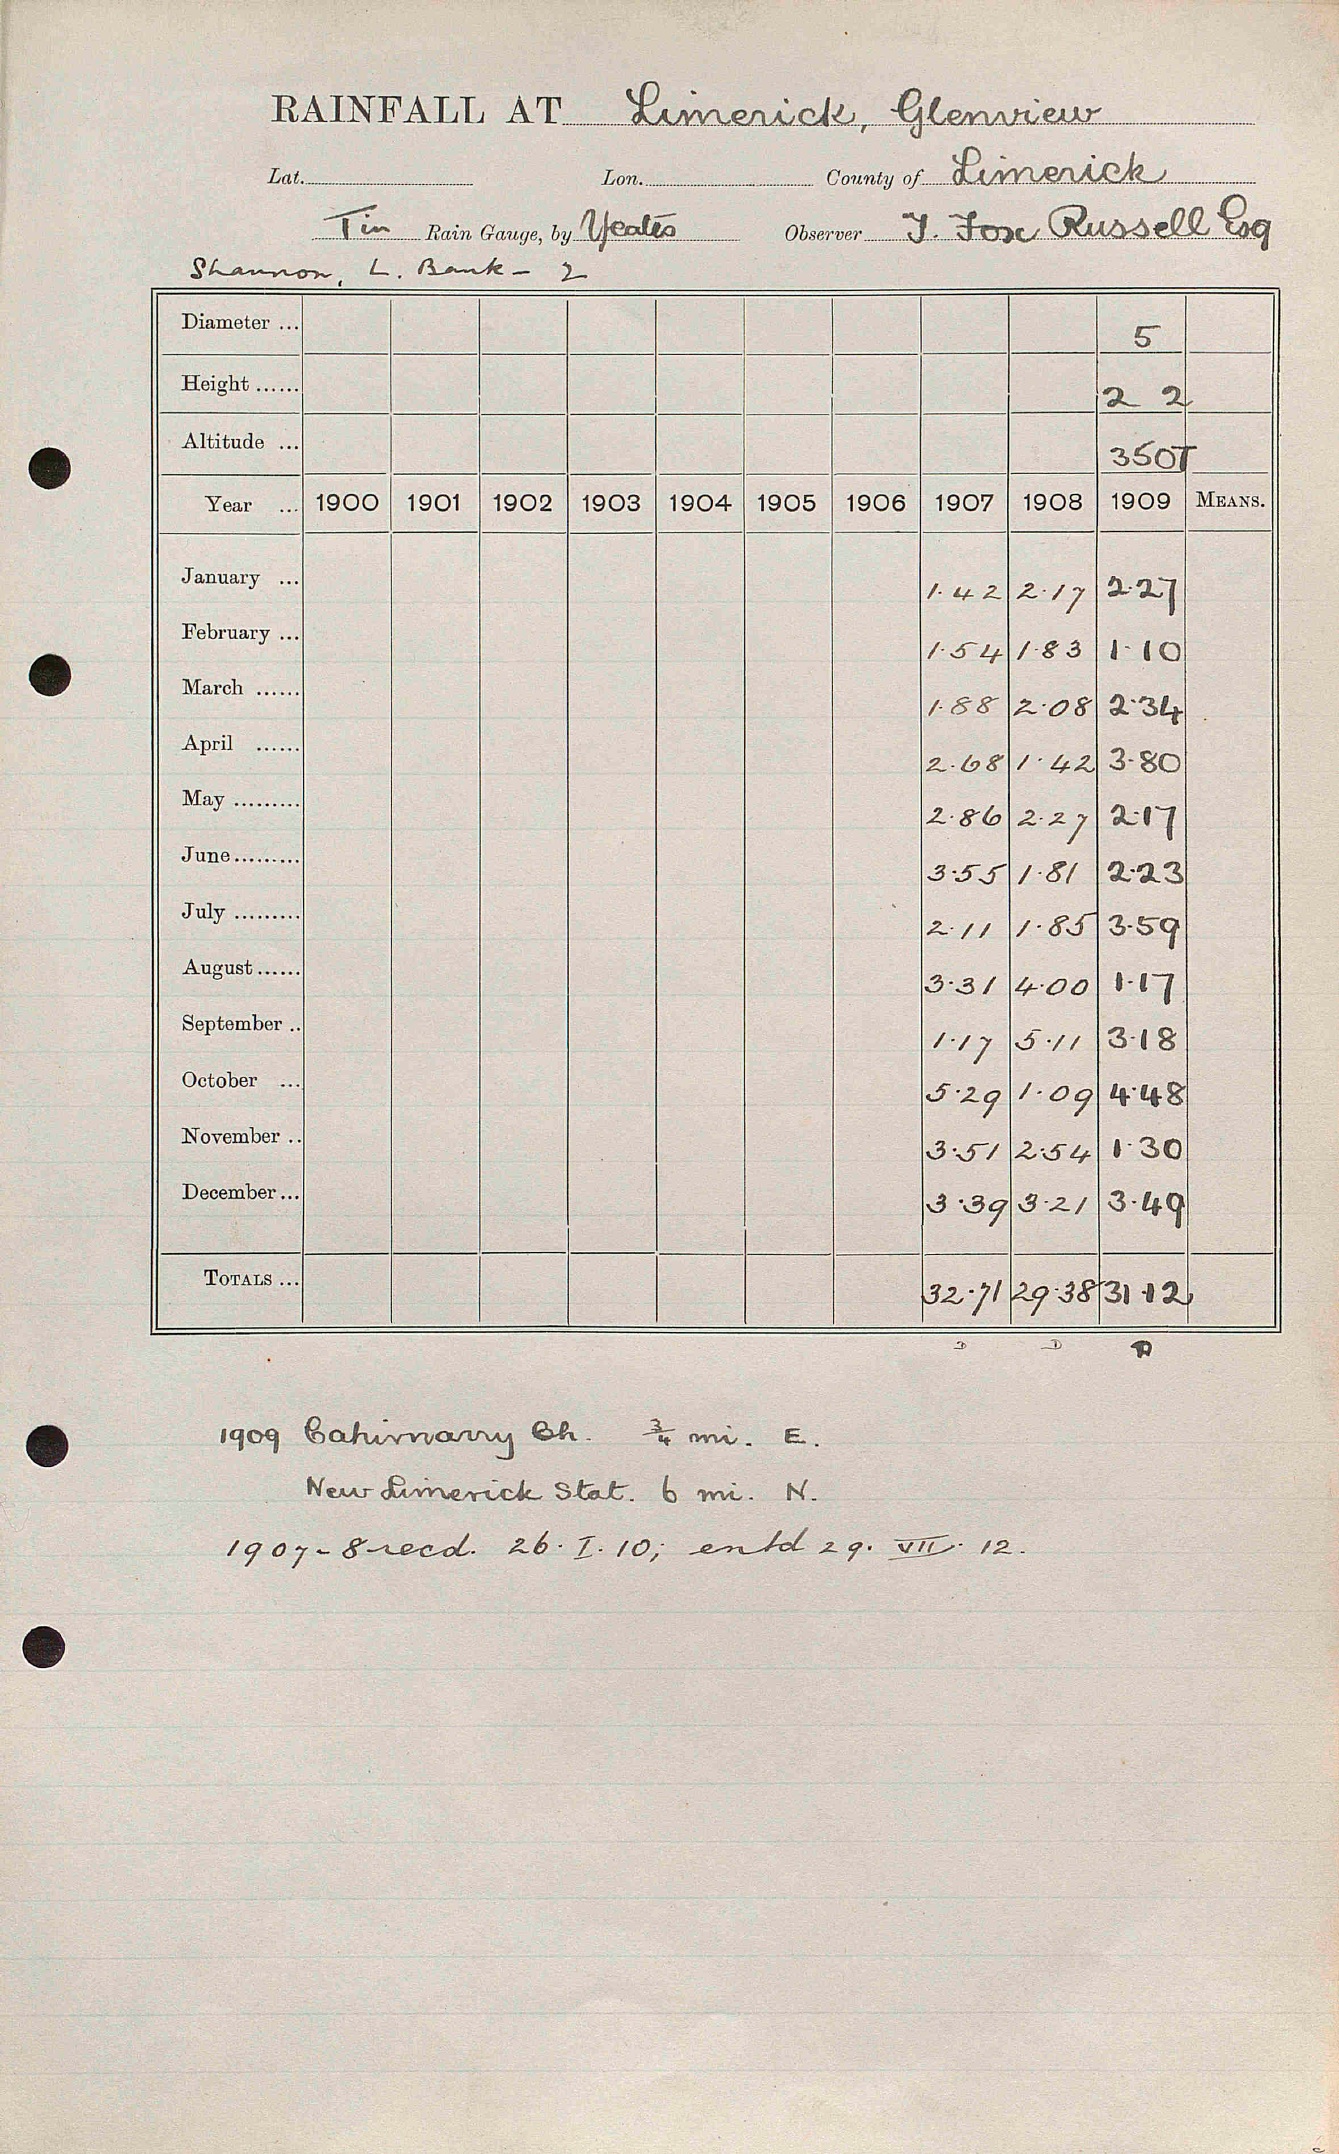 RAINFALL AT Limerick, Glenview
Lat. Lon. County of Limerick
Tin Rain Gauge, by Yeates Observer T. Fox Russell Esq
Shannon, L. Bank - 2
Diameter ... 5
Height ...... 2 2
Altitude ... 350T
Year ... 1900 1901 1902 1903 1904 1905 1906 1907 1908 1909 MEANS.
January ... 1.42 2.17 2.27
February ... 1.54 1.83 1.10
March ...... 1.88 2.08 2.34
April ...... 2.68 1.42 3.80
May ......... 2.86 2.27 2.17
June ......... 3.55 1.81 2.23
July ......... 2.11 1.85 3.59
August ...... 3.31 4.00 1.17
September .. 1.17 5.11 3.18
October ... 5.29 1.09 4.48
November .. 3.51 2.54 1.30
December ... 3.39 3.21 3.49
TOTALS ... 32.71 29.38 31.12
1909 Cahirnarry Ch. ¾ mi. E.
New Limerick Stat. 6 mi. N.
1907-8 recd. 26. I. 10; entd 29. VII. 12.